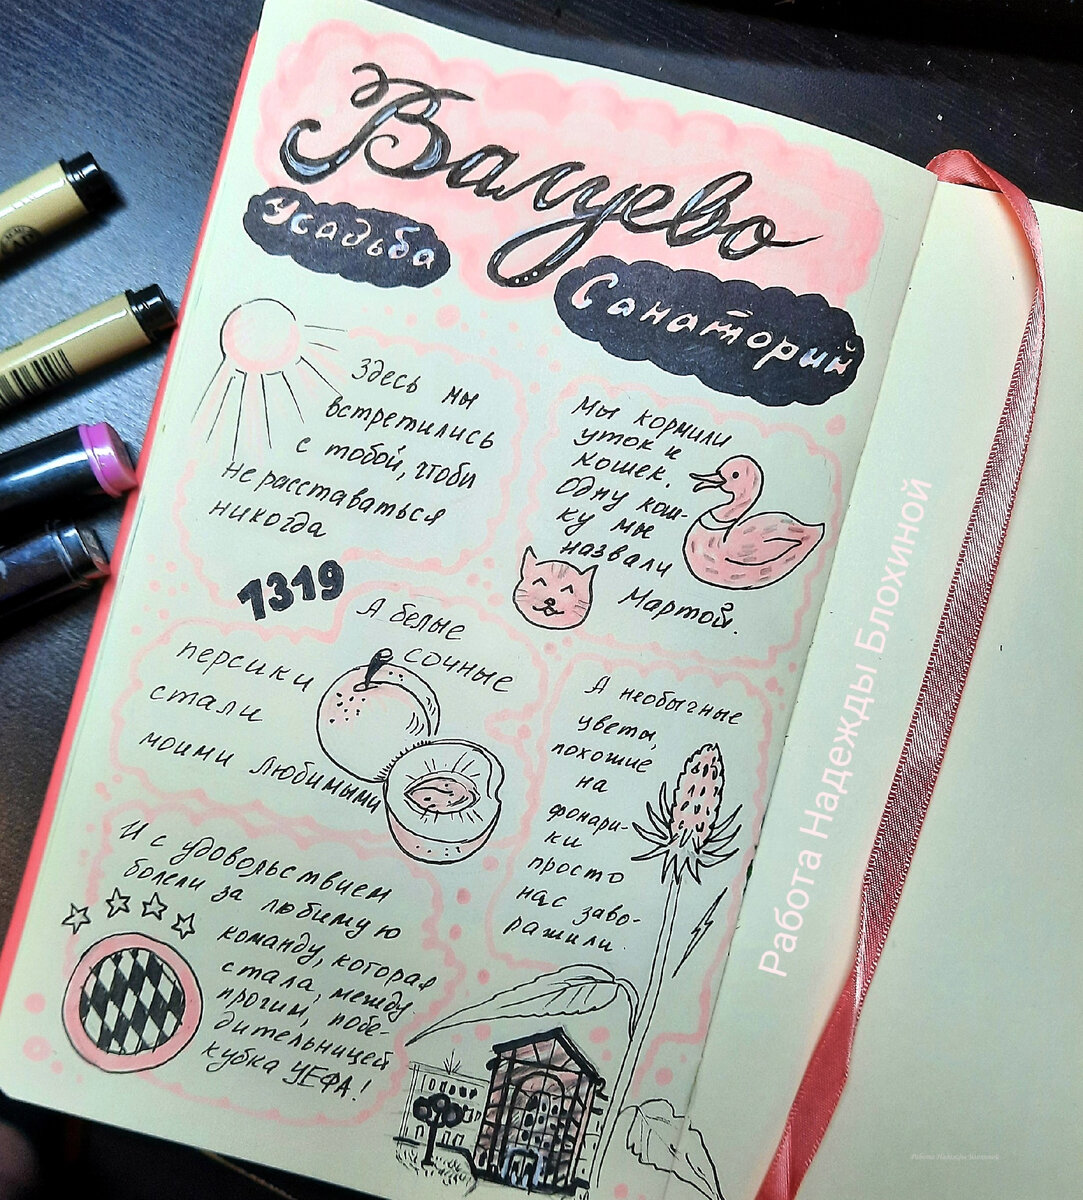 Валуево
Усадьба
Санаторий
Здесь мы
встретились
с тобой, чтобы
не расставаться
никогда
Мы кормили
уток и
кошек.
Одну кош-
ку мы
назвали
Мартой.
1319
А белые
сочные
персики
стали
моими любимыми
А необычные
цветы,
похожие
на
фонари-
ки
просто
нас заво-
ражили.
И с удовольствием
болели за любимую
команду, которая
стала, между
прочим, побе-
дительницей
кубка УЕФА!
Работа Надежды Блохиной
Работа Надежды Блохиной